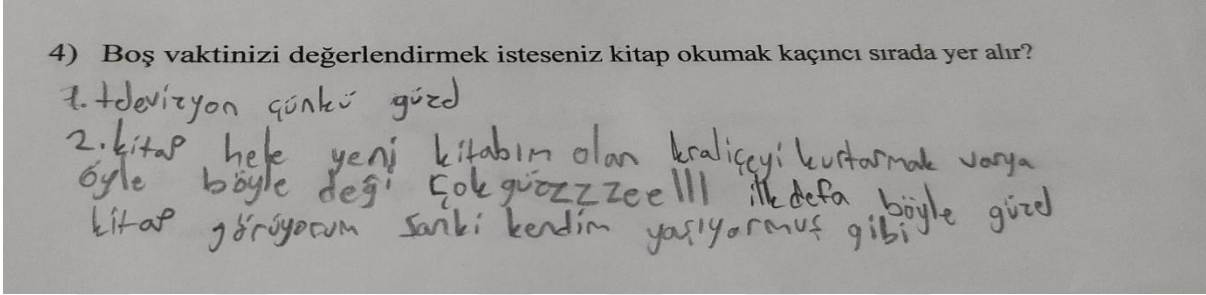 4) Boş vaktinizi değerlendirmek isteseniz kitap okumak kaçıncı sırada yer alır?
1. televizyon çünkü güzel
2. kitap hele yeni kitabım olan kraliçeyi kurtarmak varya
öyle böyle değі çok güzzzzeelll ilk defa böyle güzel
kitap görüyorum sanki kendim yaşıyormuş gibi